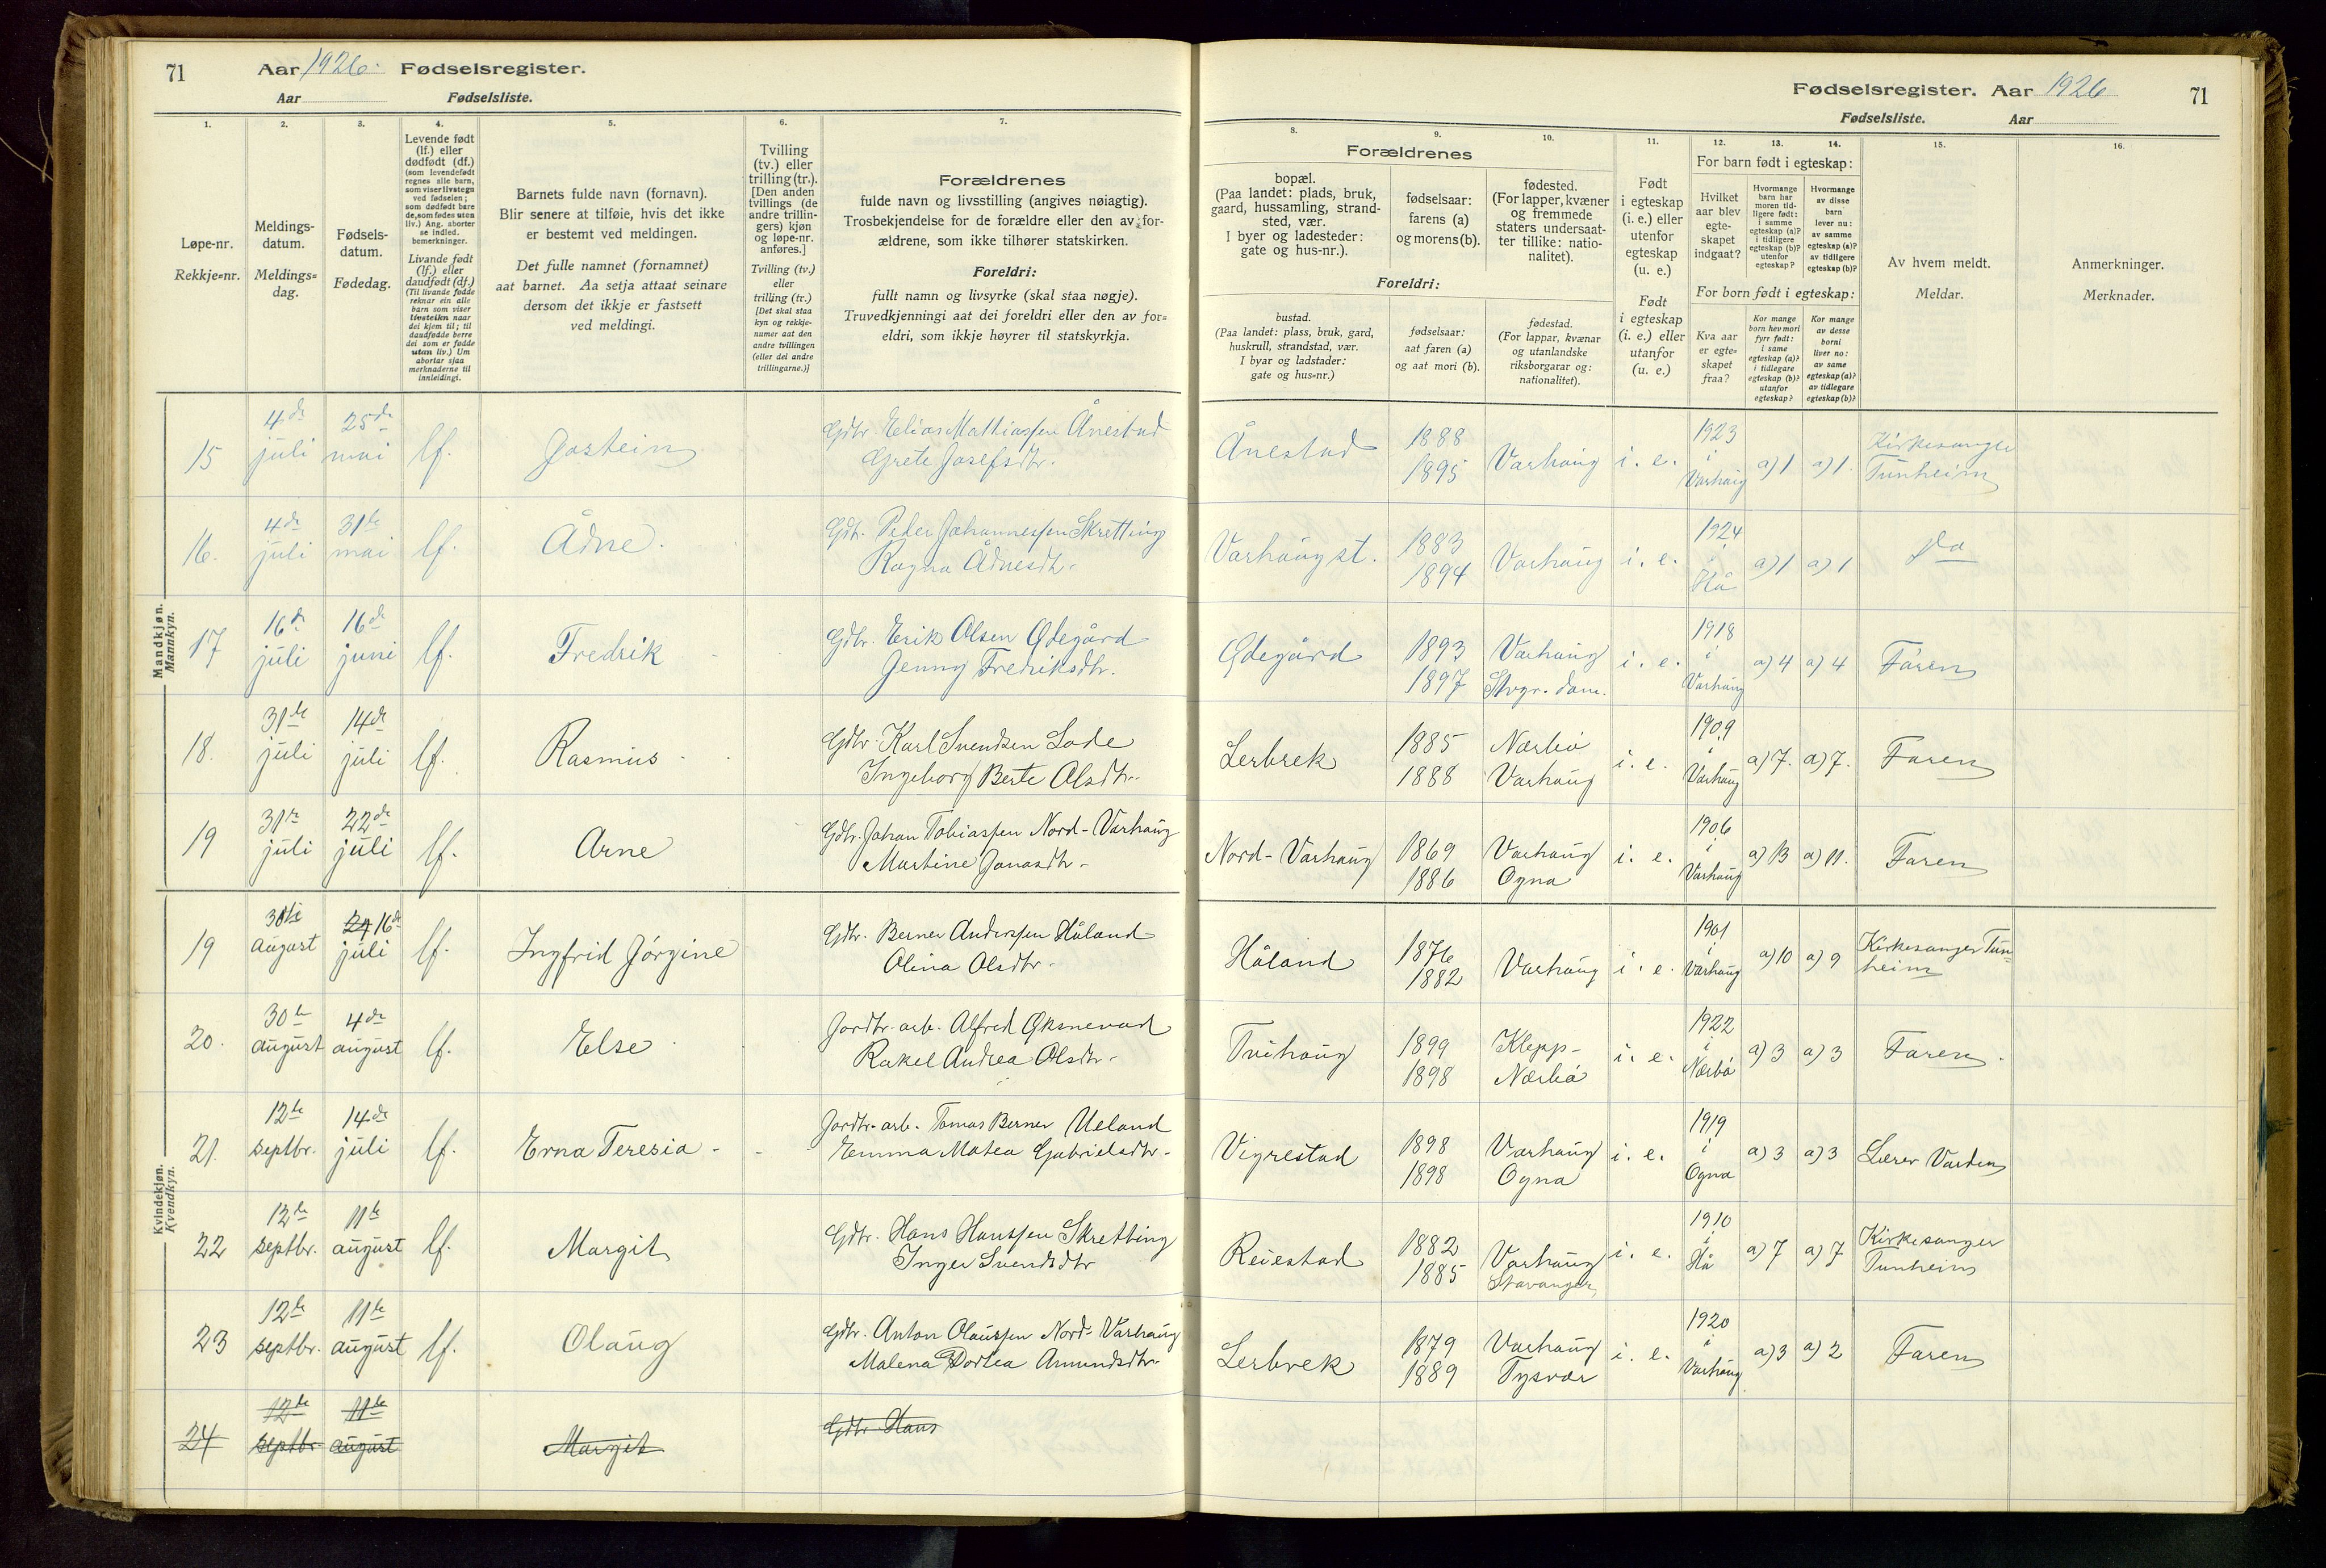 71 Aar 1926. Fødselsregister.
Aar Fødselsliste.
1.
Løpe-nr.
Rekkje=nr.
2.
Meldings-
datum.
Meldings=
dag.
3.
Fødsels-
datum.
Fødedag.
4.
Levende født
(lf.) eller
dødfødt (df.)
(som levendefødt
regnes alle barn,
som viser livstegn
ved fødselen;
som dødfødt bare
de, som fødes uten
liv.) Ang. aborter
se indled.
bemerkninger.
Livande født
(lf.) eller
daudfødt (df.)
(Til livande fødde
reknar ein alle
barn som viser
livsteikn naar
dei kjem til; til
daudfødde berre
dei som er fødde
utan liv.) Um
abortar sjaa
merknaderne til
innleidingi.
5.
Barnets fulde navn (fornavn).
Blir senere at tilføie, hvis det ikke
er bestemt ved meldingen.
Det fulle namnet (fornamnet)
aat barnet. Aa setja attaat seinare
dersom det ikkje er fastsett
ved meldingi.
6.
Tvilling
(tv.) eller
trilling (tr.).
[Den anden
tvillings (de
andre trillin-
gers) kjøn
og løpe-nr.
anføres.]
Tvilling (tv.)
eller
trilling (tr.)
[Det skal staa
kyn og rekkje-
numer aat den
andre tvillingen
(eller dei andre
trillingarne.)]
7.
Forældrenes
fulde navn og livsstilling (angives nøiagtig).
Trosbekjendelse for de forældre eller den av for-
ældrene, som ikke tilhører statskirken.
Foreldri:
fullt namn og livsyrke (skal staa nøgje).
Truvedkjenningi aat dei foreldri eller den av for=
eldri, som ikkje høyrer til statskyrkja.
Fødselsregister. Aar 1926 71
Fødselsliste. Aar
Forældrenes
8.
bopæl.
(Paa landet: plads, bruk,
gaard, hussamling, strand-
sted, vær.
I byer og ladesteder:
gate og hus-nr.).
9.
fødselsaar:
farens (a)
og morens (b).
10.
fødested.
(For lapper, kvæner
og fremmede
staters undersaat-
ter tillike: natio-
nalitet).
Foreldri:
bustad.
(Paa landet: plass, bruk, gard,
huskrull, strandstad, vær.
I byar og ladstader:
gate og hus=nr.)
fødselsaar:
aat faren (a)
og aat mori (b).
fødestad.
(For lappar, kvænar
og utanlandske
riksborgarar og:
nationalitet).
11.
Født
i egteskap
(i. e.) eller
utenfor
egteskap
(u. e.)
Født
i egteskap
(i. e.) eller
utanfor
(u. e.)
12. 13. 14.
For barn født i egteskap:
Hvilket
aar blev
egte-
skapet
indgaat?
Hvormange
barn har
moren tid-
ligere født:
i samme
egteskap (a)?
i tidligere
egteskap (b)?
utenfor
egteskap?
Hvormange
av disse
barn
lever nu:
av samme
egteskap (a)?
av tidligere
egteskap (b)?
For born født i egteskap:
Kva aar
er egte=
skapet
fraa?
Kor mange
born hev mori
fyrr født:
i same
egteskap (a)?
i tidlegare
egteskap (b)?
utanfor
egteskap?
Kor mange
av desse
borni
liver no:
av same
egteskap (a)?
av tidlegare
egteskap (b)?
15.
Av hvem meldt.
Meldar.
16.
Anmerkninger.
Merknader.
Mandkjøn.
Mannkyn.
15 4de juli 25de mai lf. Jostein Gdbr. Elias Mathiassen Ånestad
Grete Josefsdtr. Ånestad 1888 1895 Varhaug i. e. 1923 i Varhaug a) 1 a) 1. Kirkesanger Tunheim
16. 4de juli 31te mai lf. Ådne. Gdbr. Peder Johannessen Skretting
Ragna Ådnesdtr. Varhaug st. 1883 1894 Varhaug i. e. 1924 i Hå a) 1 a) 1 Do
17 16de juli 16de juni lf. Fredrik Gdbr. Erik Olsen Ødegård
Jenny Fredriksdtr. Ødegård 1893 1897 Varhaug Stvgr. dom. i. e. 1918 i Varhaug a) 4 a) 4 Faren
18. 31te juli 14de juli lf. Rasmus Gdbr. Karl Svendsen Lode
Ingeborg Berte Olsdtr. Lerbrek 1885 1888 Nærbø Varhaug i. e. 1909 i Varhaug a) 7. a) 7. Faren
19 31te juli 22de juli lf. Arne Gdbr. Johan Tobiassen Nord-Varhaug
Martine Jonasdtr. Nord-Varhaug 1869 1886 Varhaug Ogna i. e. 1906 i Varhaug a) 13 a) 11. Faren
Kvindekjøn.
Kvendkyn.
19 30te august 24 16de juli lf. Ingfrid Jørgine Gdbr. Berner Anderssen Håland
Olina Olsdtr. Håland 1876 1882 Varhaug i. e. 1901 i Varhaug a) 10 a) 9 Kirkesanger Tun=
heim
20. 30te august 4de august lf. Else Jordbr. arb. Alfred Øksnevad
Rakel Andrea Olsdtr. Tvihaug 1899 1898 Klepp- Nærbø i. e. 1922 i Nærbø a) 3 a) 3 Faren.
21. 12te septbr. 14de juli lf. Erna Teresia Jordbr. arb. Tomas Berner Ueland
Emma Matea Gabrielsdtr. Vigrestad 1898 1898 Varhaug Ogna i. e. 1919 i Ogna a) 3 a) 3 Lærer Varden
22 12te septbr. 11te august lf. Margit Gdbr. Hans Hanssen Skretting
Inger Svendsdtr Reiestad 1882 1885 Varhaug Stavanger i. e. 1910 i Hå a) 7 a) 7 Kirkesanger Tunheim
23 12te septbr. 11te august lf. Olaug Gdbr. Anton Olaussen Nord-Varhaug
Malena Dortea Amundsdtr. Lerbrek 1879 1889 Varhaug Tysvær i. e. 1920 i Varhaug a) 3 a) 2 Faren
24 12te septbr 11te august Margit Gdbr Hans